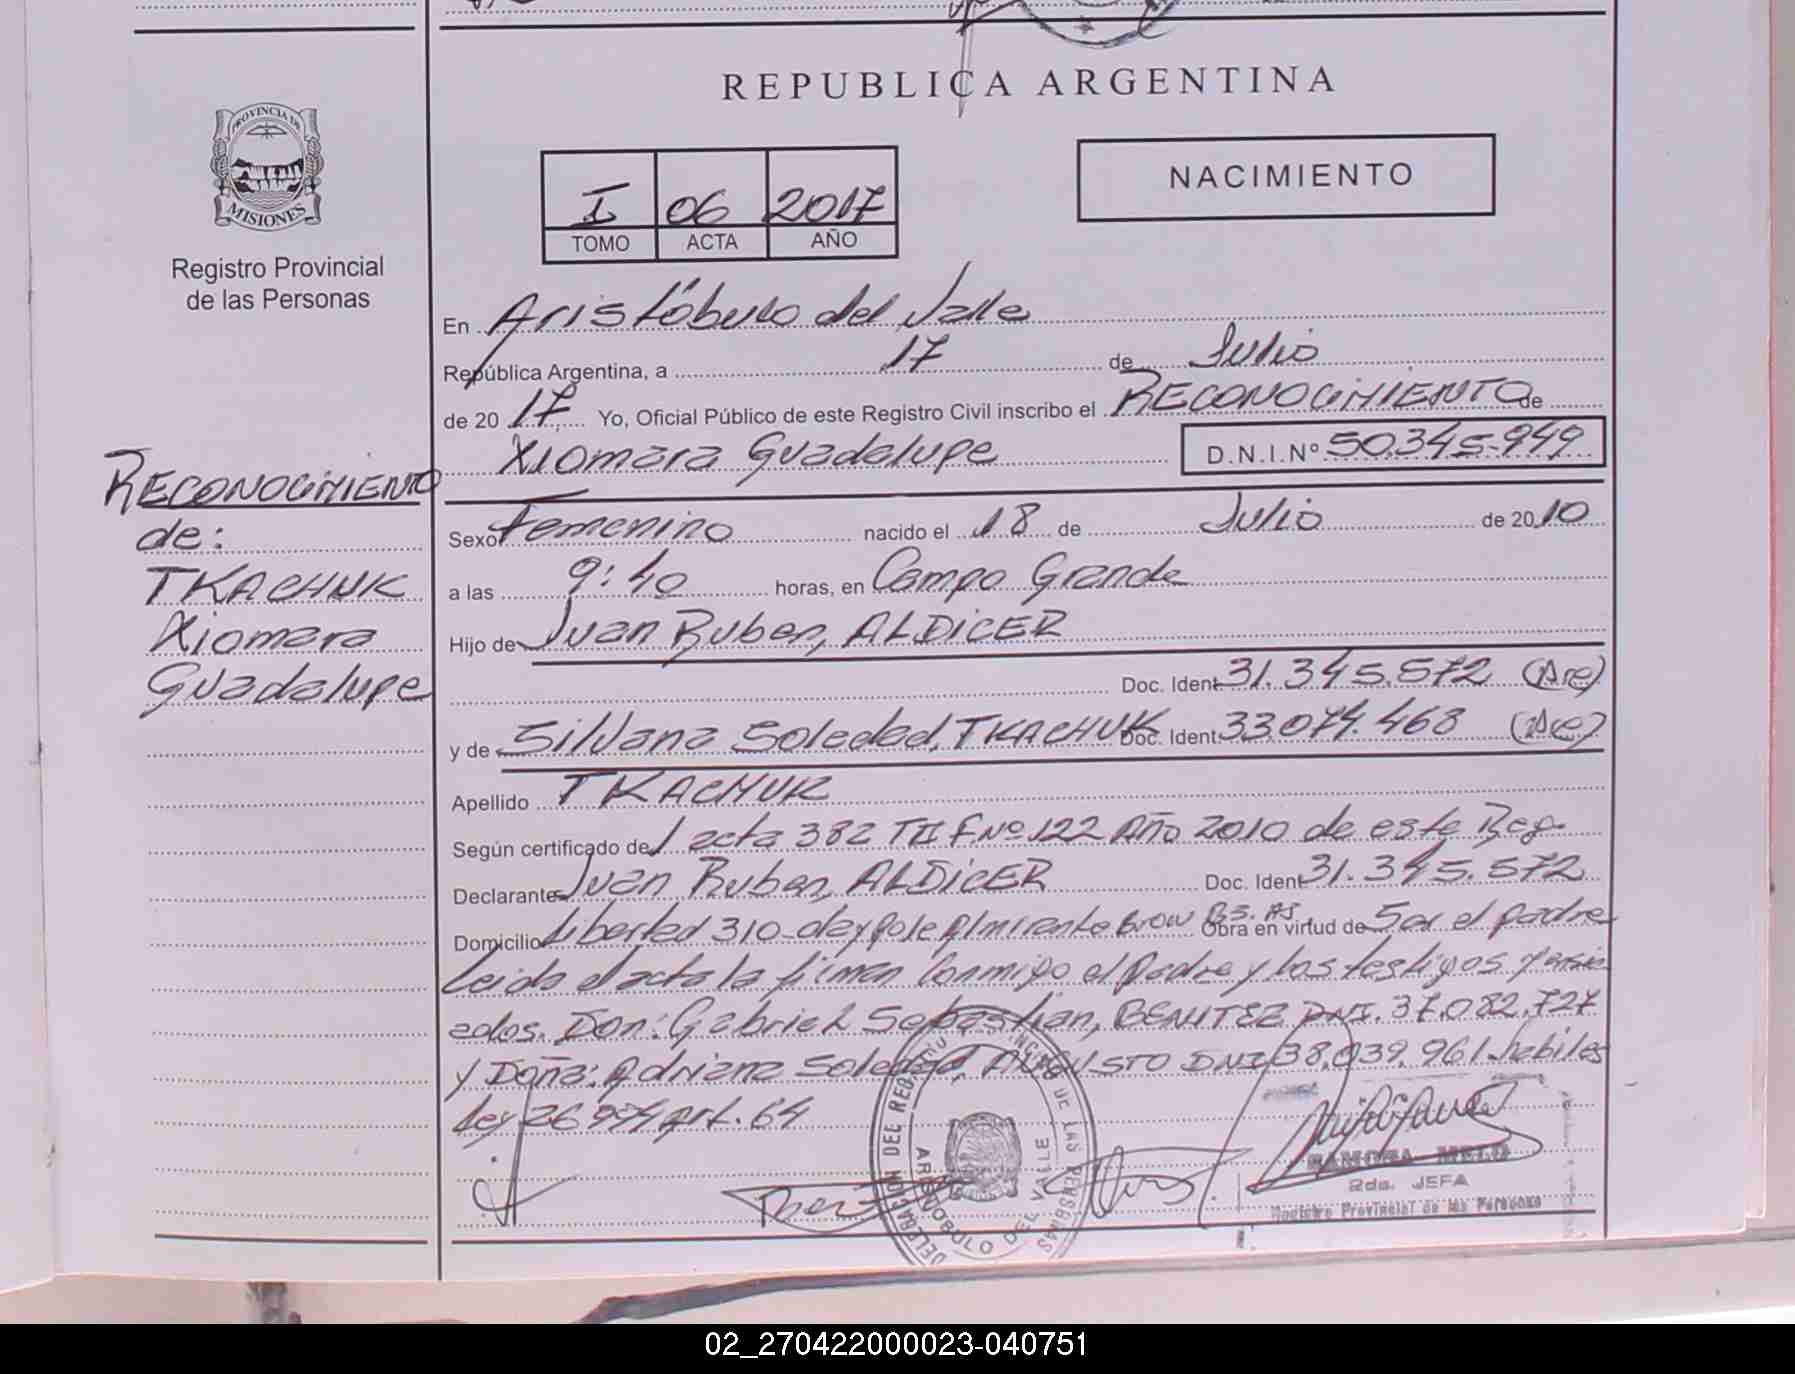 REPUBLICA ARGENTINA
PROVINCIA DE
MISIONES
Registro Provincial
de las Personas
I 06 2017
TOMO ACTA AÑO
NACIMIENTO
En Aristóbulo del Valle
República Argentina, a 17 de Julio
de 20 17 Yo, Oficial Público de este Registro Civil inscribo el RECONOCIMIENTO de
Xiomara Guadalupe D.N.I.Nº 50.345.949
RECONOCIMIENTO
de:
TKACHUK
Xiomara
Guadalupe
Sexo Femenino nacido el 18 de Julio de 20 10
a las 9:40 horas, en Campo Grande
Hijo de Juan Ruben, ALDICER
Doc. Ident. 31.345.572 (Arg)
y de Silvana Soledad, TKACHUK Doc. Ident. 33.074.468 (Arg)
Apellido TKACHUK
Según certificado de acta 382 TII F.Nº 122 Año 2010 de este Reg.
Declarante Juan Ruben, ALDICER Doc. Ident. 31.345.572
Domicilio Libertad 310 Almirante Brow BS. AS. Obra en virtud de Ser el padre
Leida el acta la firman conmigo el Padre y los testigos
Don: Gabriel Sebastian, BENITEZ DNI. 37.082.727
y Doña: Adriana Soledad, AUGUSTO DNI 38.039.961 habiles
Ley 26.994 Art. 64
DELEGACION DEL REG. PROVINCIAL DE LAS PERSONAS
ARISTOBULO DEL VALLE
RAMONA MELO
2da. JEFA
Registro Provincial de las Personas
02_270422000023-040751